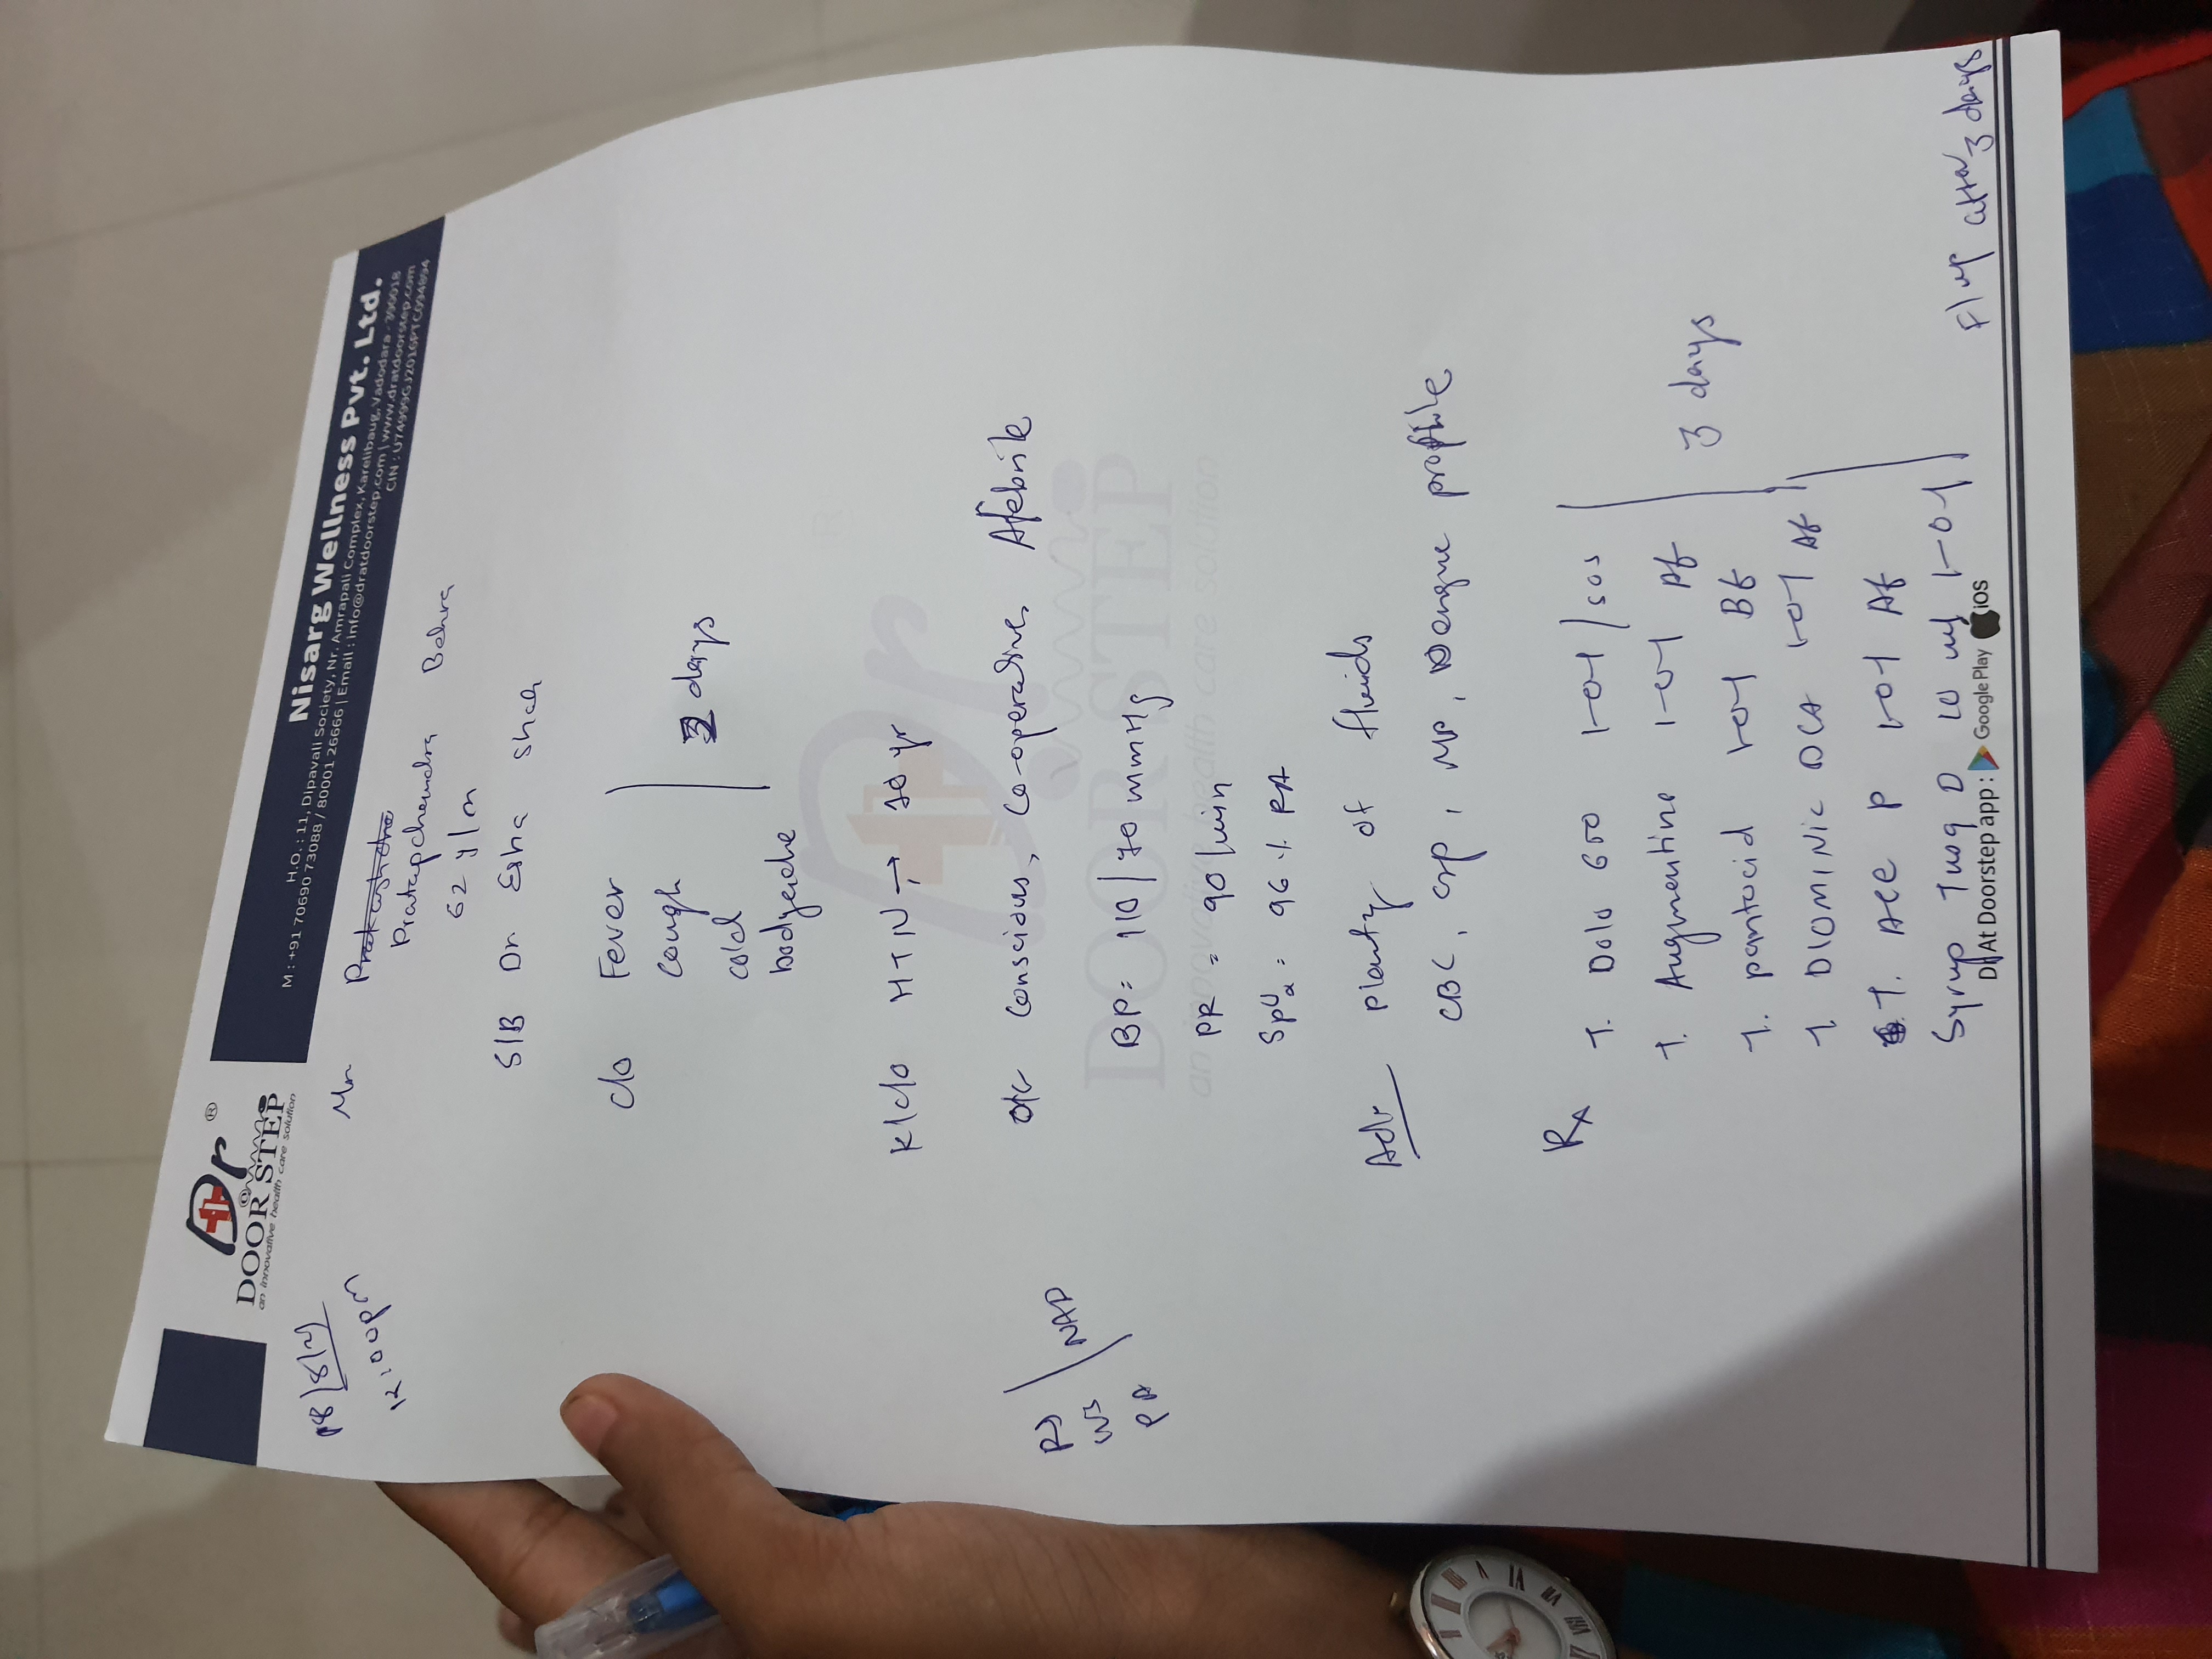 Dr ®
DOOR STEP
an innovative health care solution
Nisarg Wellness Pvt. Ltd.
H.O. : 11, Dipavali Society, Nr. Amrapali Complex, Karelibaug, Vadodara - 390018
M : +91 70690 73088 / 80001 26666 | Email : info@dratdoorstep.com | www.dratdoorstep.com
CIN : U74999GJ2016PTC094894
18/8/21
12:00pm
Mr
Pratapchandra Behra
62 y/m
S/B Dr. Esha Shah
c/o Fever
cough
cold
bodyache
days
k/c/o HTN → 10 yr
o/e conscious, co-operative, Afebrile
RS
CVS
PA
NAD
BP = 110/70 mmHg
PR = 90/min
SpO2 = 96 % RA
Adv plenty of fluids
CBC, crp, MP, Dengue profile
Rx
T. Dolo 650 1-0-1/sos
T. Augmentine 1-0-1 Af
T. pantocid 1-0-1 Bf
T. DIOMINIC DCA 1-0-1 Af
T. Ace P 1-0-1 Af
Syrup Tusq D 10 ml 1-0-1
3 days
F/up after 3 days
Dr At Doorstep app : Google Play iOS